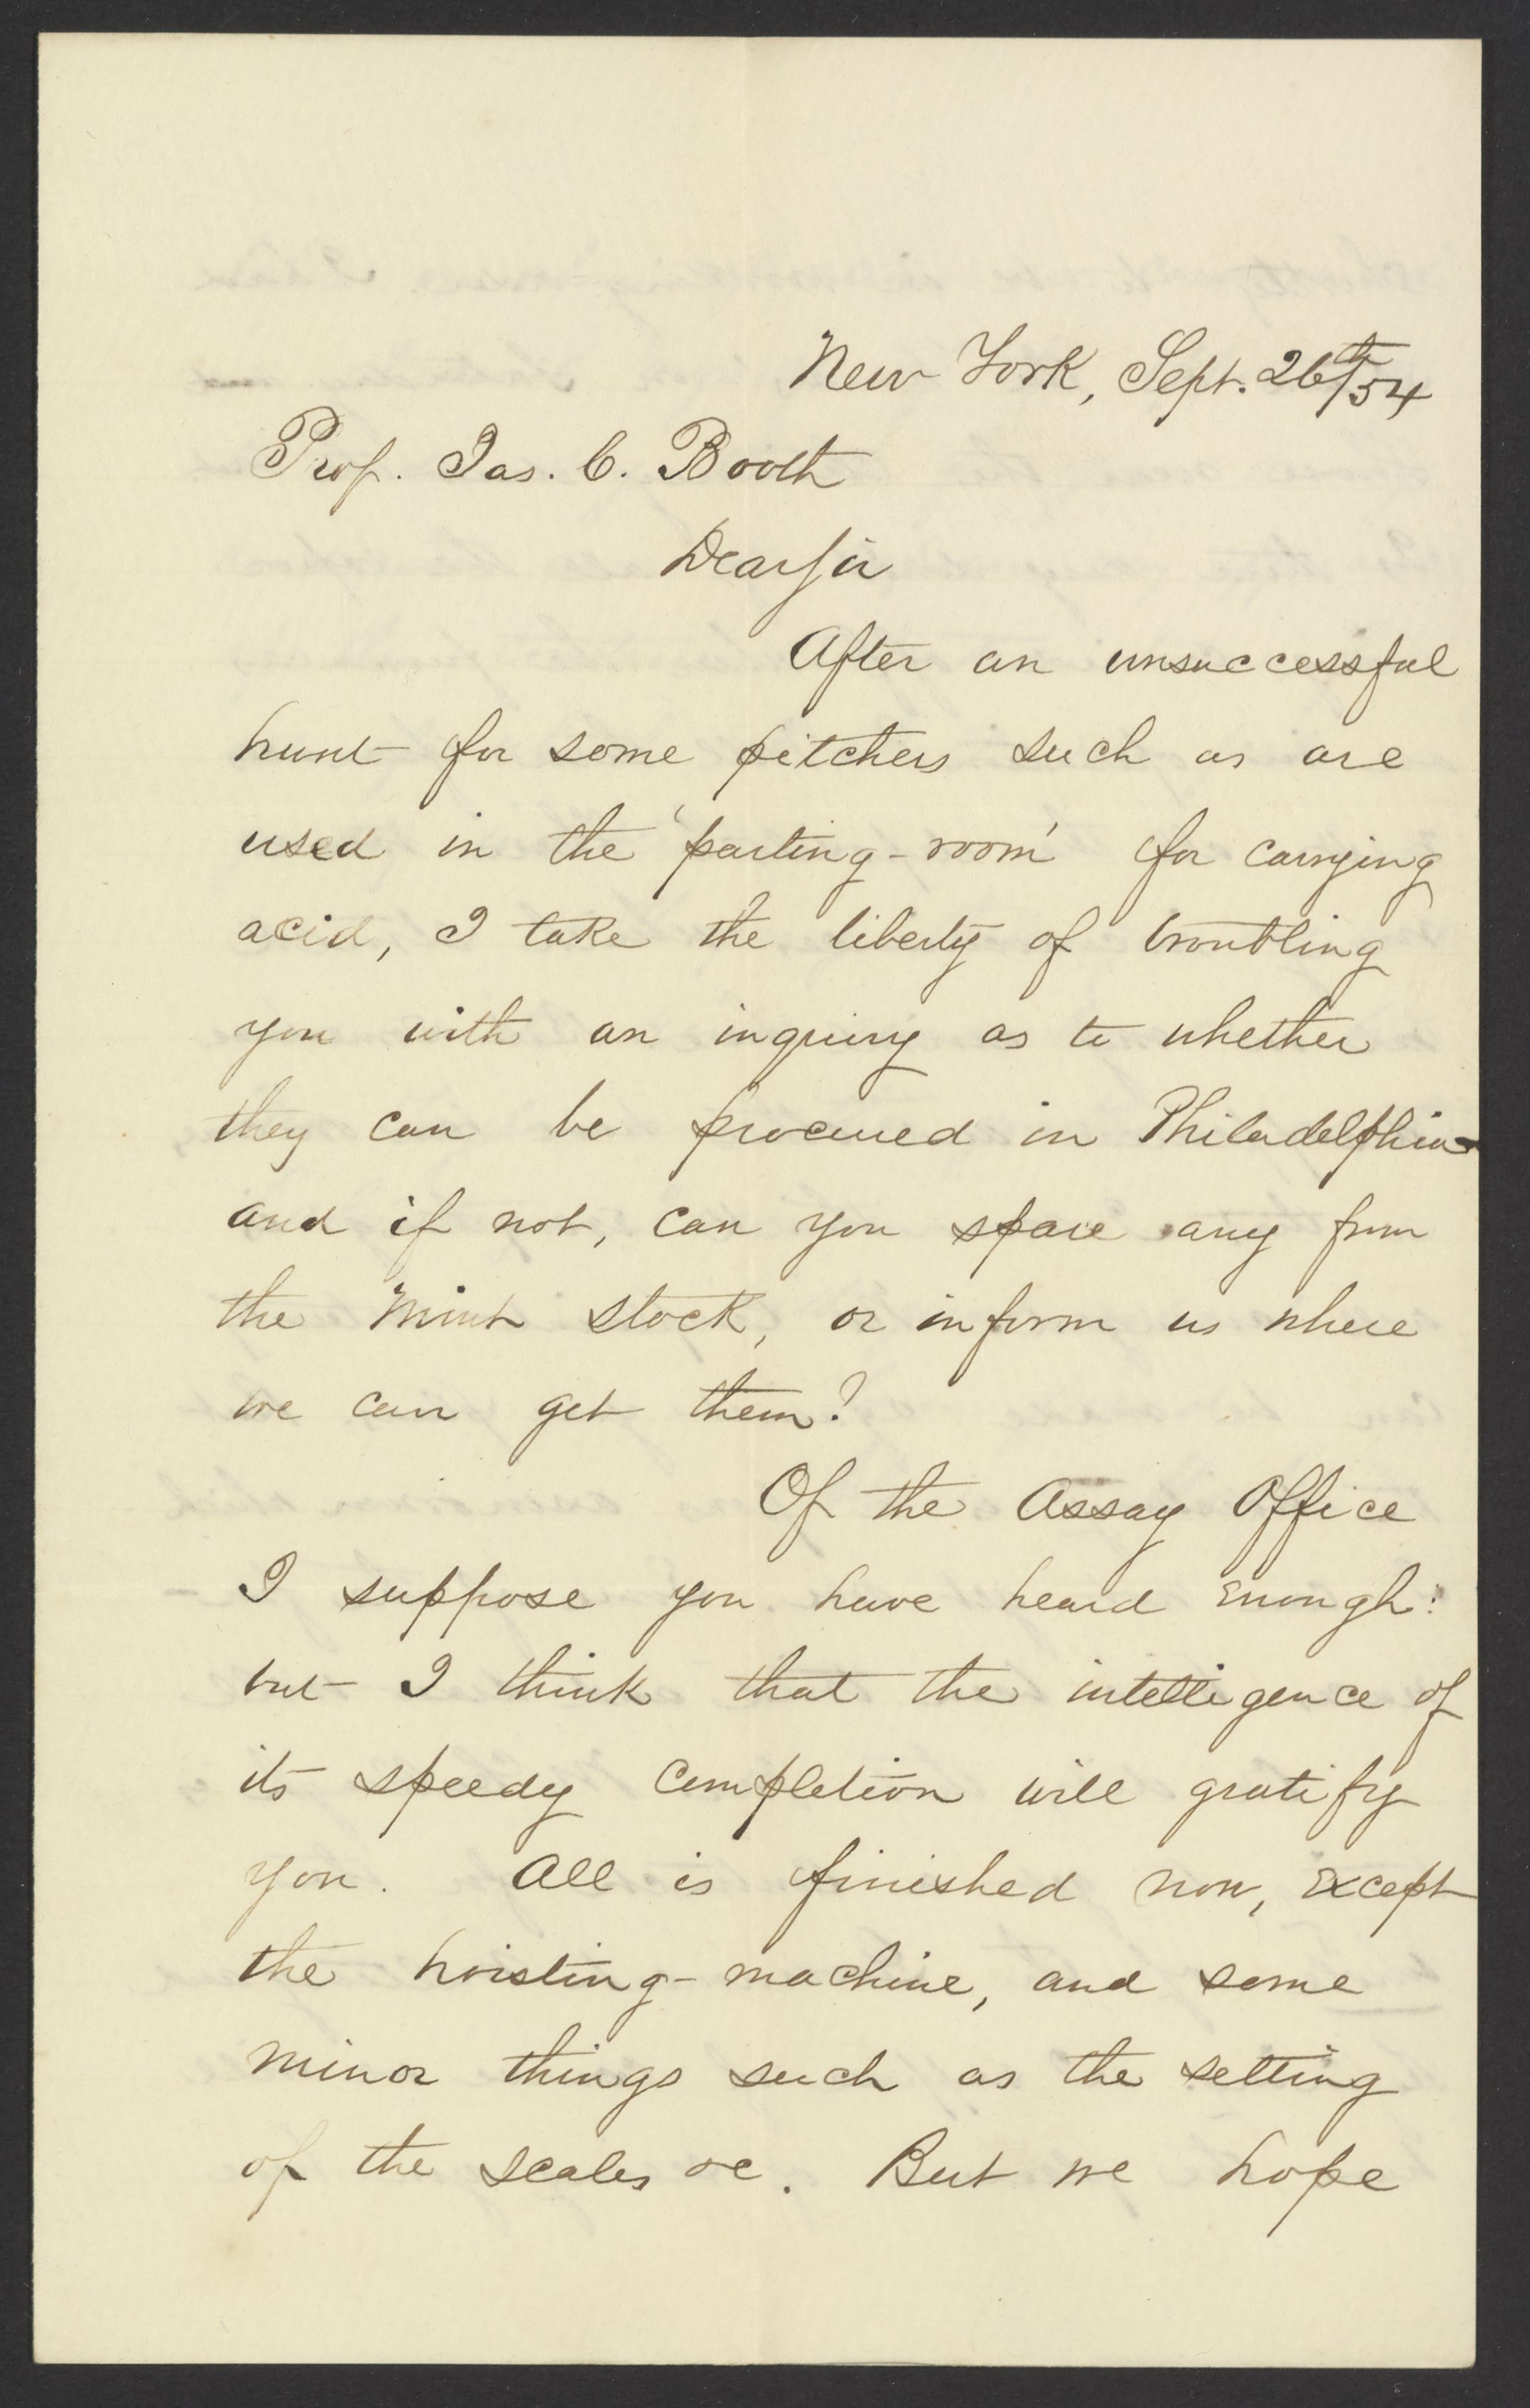 New York, Sept. 26th/54
Prof. Jas. C. Booth
Dear Sir
After an unsuccessful
hunt for some pitchers such as are
used in the 'parting-room' for carrying
acid, I take the liberty of troubling
you with an inquiry as to whether
they can be procured in Philadelphia
and if not, can you spare any from
the Mint stock, or inform us where
we can get them?
Of the Assay Office
I suppose you have heard enough:
but I think that the intelligence of
its speedy completion will gratify
you. All is finished now, except
the hoisting-machine, and some
minor things such as the setting
of the scales &c. But we hope